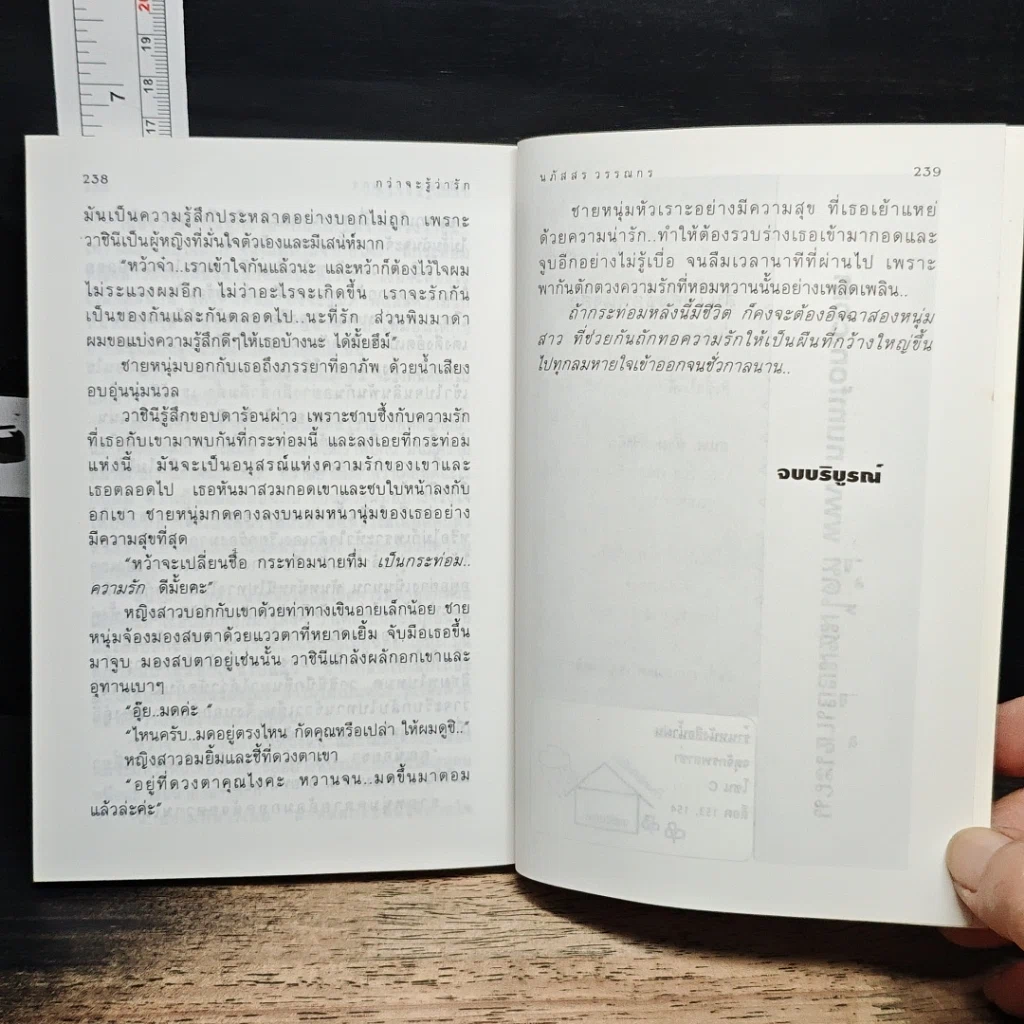 20
19
18
7
17
238
กว่าจะรู้ว่ารัก
มันเป็นความรู้สึกประหลาดอย่างบอกไม่ถูก เพราะ
วาชินีเป็นผู้หญิงที่มั่นใจตัวเองและมีเสน่ห์มาก
“หว้าจ๋า..เราเข้าใจกันแล้วนะ และหว้าก็ต้องไว้ใจผม
ไม่ระแวงผมอีก ไม่ว่าอะไรจะเกิดขึ้น เราจะรักกัน
เป็นของกันและกันตลอดไป..นะที่รัก ส่วนพิมมาดา
ผมขอแบ่งความรู้สึกดีๆให้เธอบ้างนะ ได้มั้ยฮึม์”
ชายหนุ่มบอกกับเธอถึงภรรยาที่อาภัพ ด้วยน้ำเสียง
อบอุ่นนุ่มนวล
วาชินีรู้สึกขอบตาร้อนผ่าว เพราะซาบซึ้งกับความรัก
ที่เธอกับเขามาพบกันที่กระท่อมนี้ และลงเอยที่กระท่อม
แห่งนี้ มันจะเป็นอนุสรณ์แห่งความรักของเขาและ
เธอตลอดไป เธอหันมาสวมกอดเขาและซบใบหน้าลงกับ
อกเขา ชายหนุ่มกดคางลงบนผมหนานุ่มของเธออย่าง
มีความสุขที่สุด
“หว้าจะเปลี่ยนชื่อ กระท่อมนายทึ่ม เป็นกระท่อม..
ความรัก ดีมั้ยคะ”
หญิงสาวบอกกับเขาด้วยท่าทางเขินอายเล็กน้อย ชาย
หนุ่มจ้องมองสบตาด้วยแววตาที่หยาดเยิ้ม จับมือเธอขึ้น
มาจูบ มองสบตาอยู่เช่นนั้น วาชินีแกล้งผลักอกเขาและ
อุทานเบาๆ
“อุ๊ย..มดค่ะ ”
“ไหนครับ..มดอยู่ตรงไหน กัดคุณหรือเปล่า ให้ผมดูซิ..”
หญิงสาวอมยิ้มและชี้ที่ดวงตาเขา
“อยู่ที่ดวงตาคุณไงคะ หวานจน..มดขึ้นมาตอม
แล้วล่ะค่ะ”
นภัสสร วรรณกร
239
ชายหนุ่มหัวเราะอย่างมีความสุข ที่เธอเย้าแหย่
ด้วยความน่ารัก..ทำให้ต้องรวบร่างเธอเข้ามากอดและ
จูบอีกอย่างไม่รู้เบื่อ จนลืมเวลานาทีที่ผ่านไป เพราะ
พากันตักตวงความรักที่หอมหวานนั้นอย่างเพลิดเพลิน..
ถ้ากระท่อมหลังนี้มีชีวิต ก็คงจะต้องอิจฉาสองหนุ่ม
สาว ที่ช่วยกันถักทอความรักให้เป็นผืนที่กว้างใหญ่ขึ้น
ไปทุกลมหายใจเข้าออกจนชั่วกาลนาน..
จบบริบูรณ์